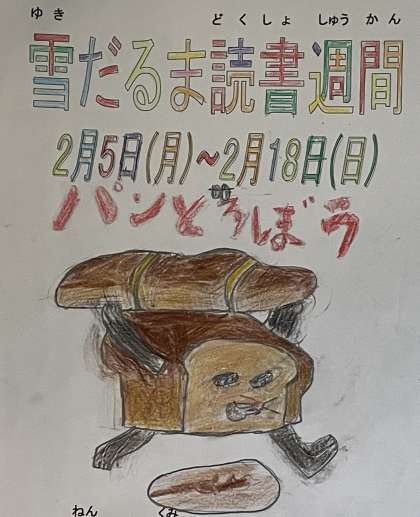 ゆき どくしょ しゅうかん
雪だるま読書週間
2月5日(月)~2月18日(日)
パンどろぼう
ねん くみ